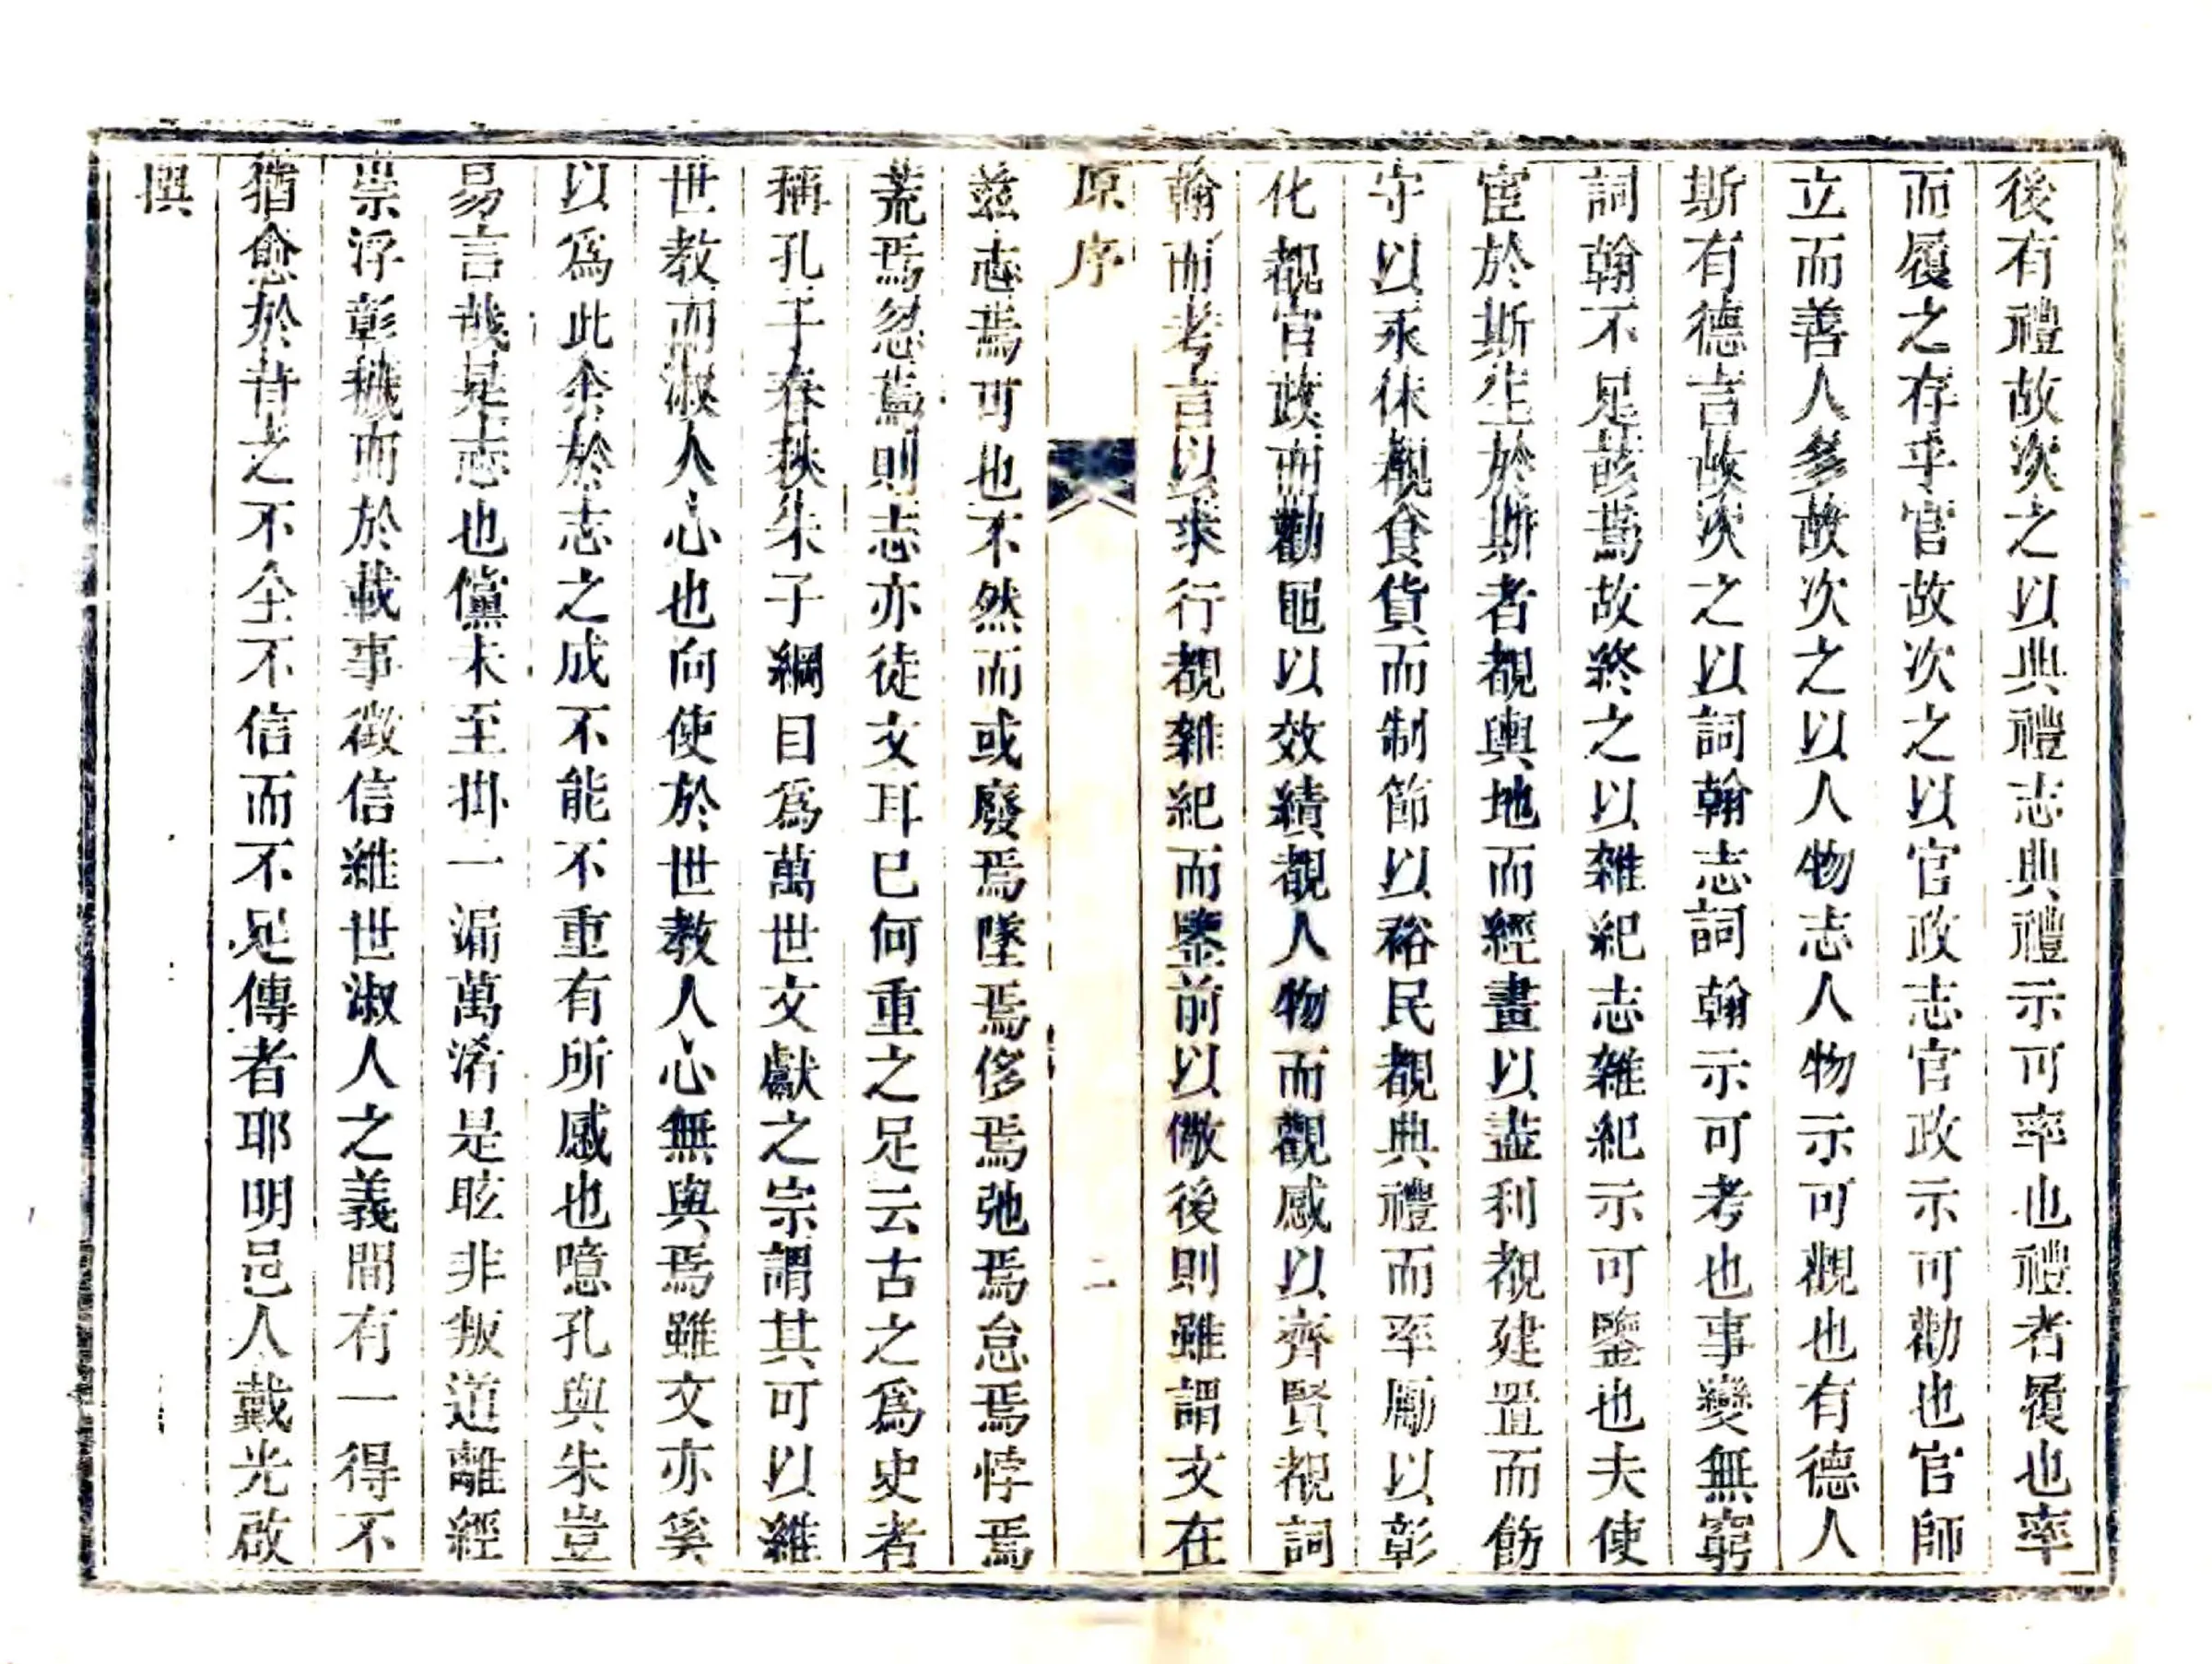 後有禮故次之以典禮志典禮示可率也禮者履也率
而履之存乎官故次之以官政志官政示可勸也官師
立而善人多故次之以人物志人物示可觀也有德人
斯有德言故次之以詞翰志詞翰示可考也事變無窮
詞翰不足該焉故終之以雜紀志雜紀示可鑒也夫使
宦於斯生於斯者覩輿地而經畫以盡利覩建置而飭
守以承休觀食貨而制節以裕民覩典禮而率勵以彰
化覩官政而勸黽以效績覩人物而觀感以齊賢覩詞
翰而考言以求行覩雜紀而鑒前以儆後則雖謂文在
原序
二
茲志焉可也不然而或廢焉墜焉侈焉弛焉怠焉悖焉
荒焉忽焉則志亦徒文耳已何重之足云古之為史者
稱孔子春秋朱子綱目為萬世文獻之宗謂其可以維
世教而淑人心也向使於世教人心無與焉雖文亦奚
以為此余於志之成不能不重有所感也噫孔與朱豈
易言哉是志也儻未至掛一漏萬淆是眩非叛道離經
崇浮彰穢而於載事徵信維世淑人之義間有一得不
猶愈於昔之不全不信而不足傳者耶明邑人戴光啟
撰